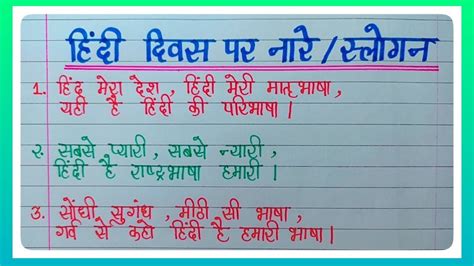 हिंदी दिवस पर नारे/स्लोगन
1. हिंद मेरा देश, हिंदी मेरी मातृभाषा,
यही है हिंदी की परिभाषा।
२. सबसे प्यारी, सबसे न्यारी,
हिंदी है राष्ट्रभाषा हमारी।
3. सोंधी सुगंध, मीठी सी भाषा,
गर्व से कहो हिंदी है हमारी भाषा।